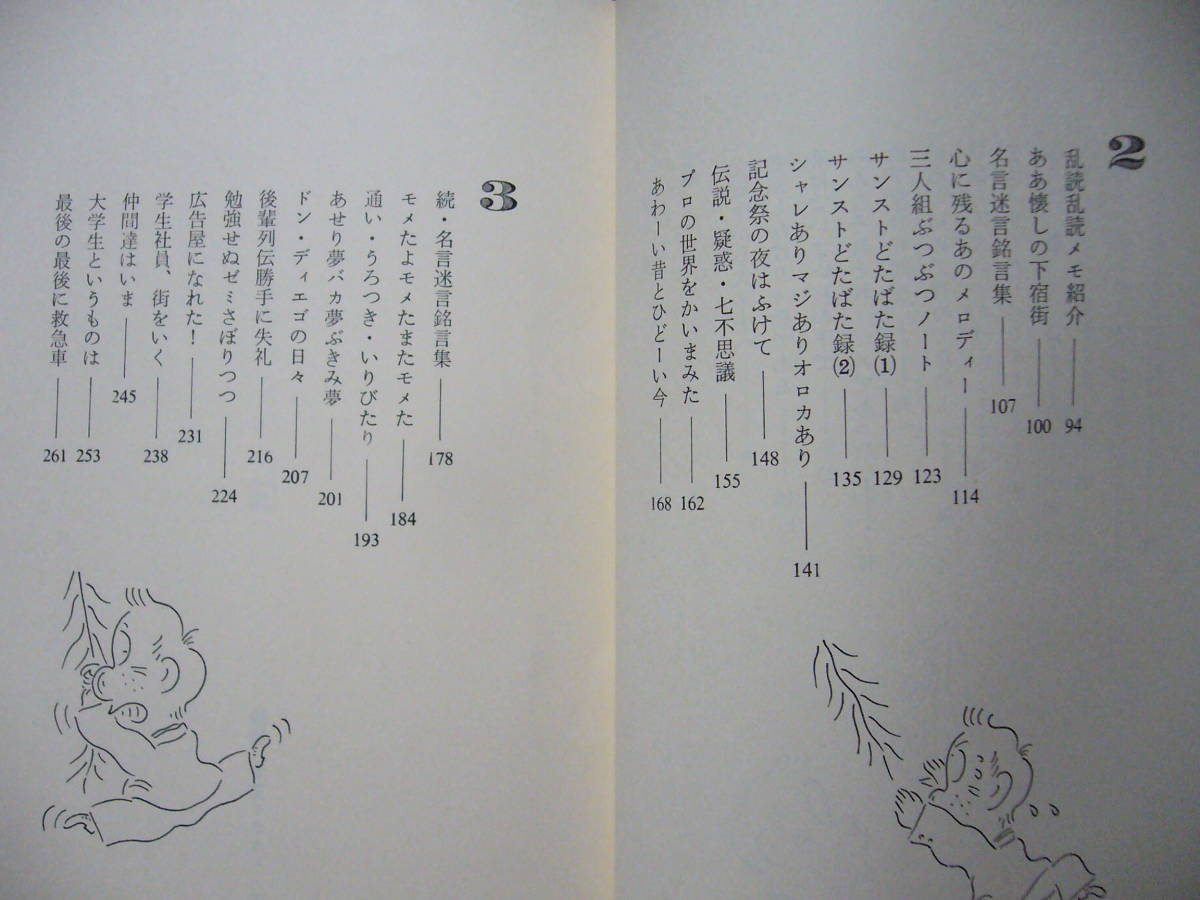 2
乱読乱読メモ紹介 94
ああ懐しの下宿街 100
名言迷言銘言集 107
心に残るあのメロディー 114
三人組ぶつぶつノート 123
サンストどたばた録(1) 129
サンストどたばた録(2) 135
シャレありマジありオロカあり 141
記念祭の夜はふけて 148
伝説・疑惑・七不思議 155
プロの世界をかいまみた 162
あわーい昔とひどーい今 168
3
続・名言迷言銘言集 178
モメたよモメたまたモメた 184
通い・うろつき・いりびたり 193
あせり夢バカ夢ぶきみ夢 201
ドン・ディエゴの日々 207
後輩列伝勝手に失礼 216
勉強せぬゼミさぼりつつ 224
広告屋になれた! 231
学生社員、街をいく 238
仲間達はいま 245
大学生というものは 253
最後の最後に救急車 261